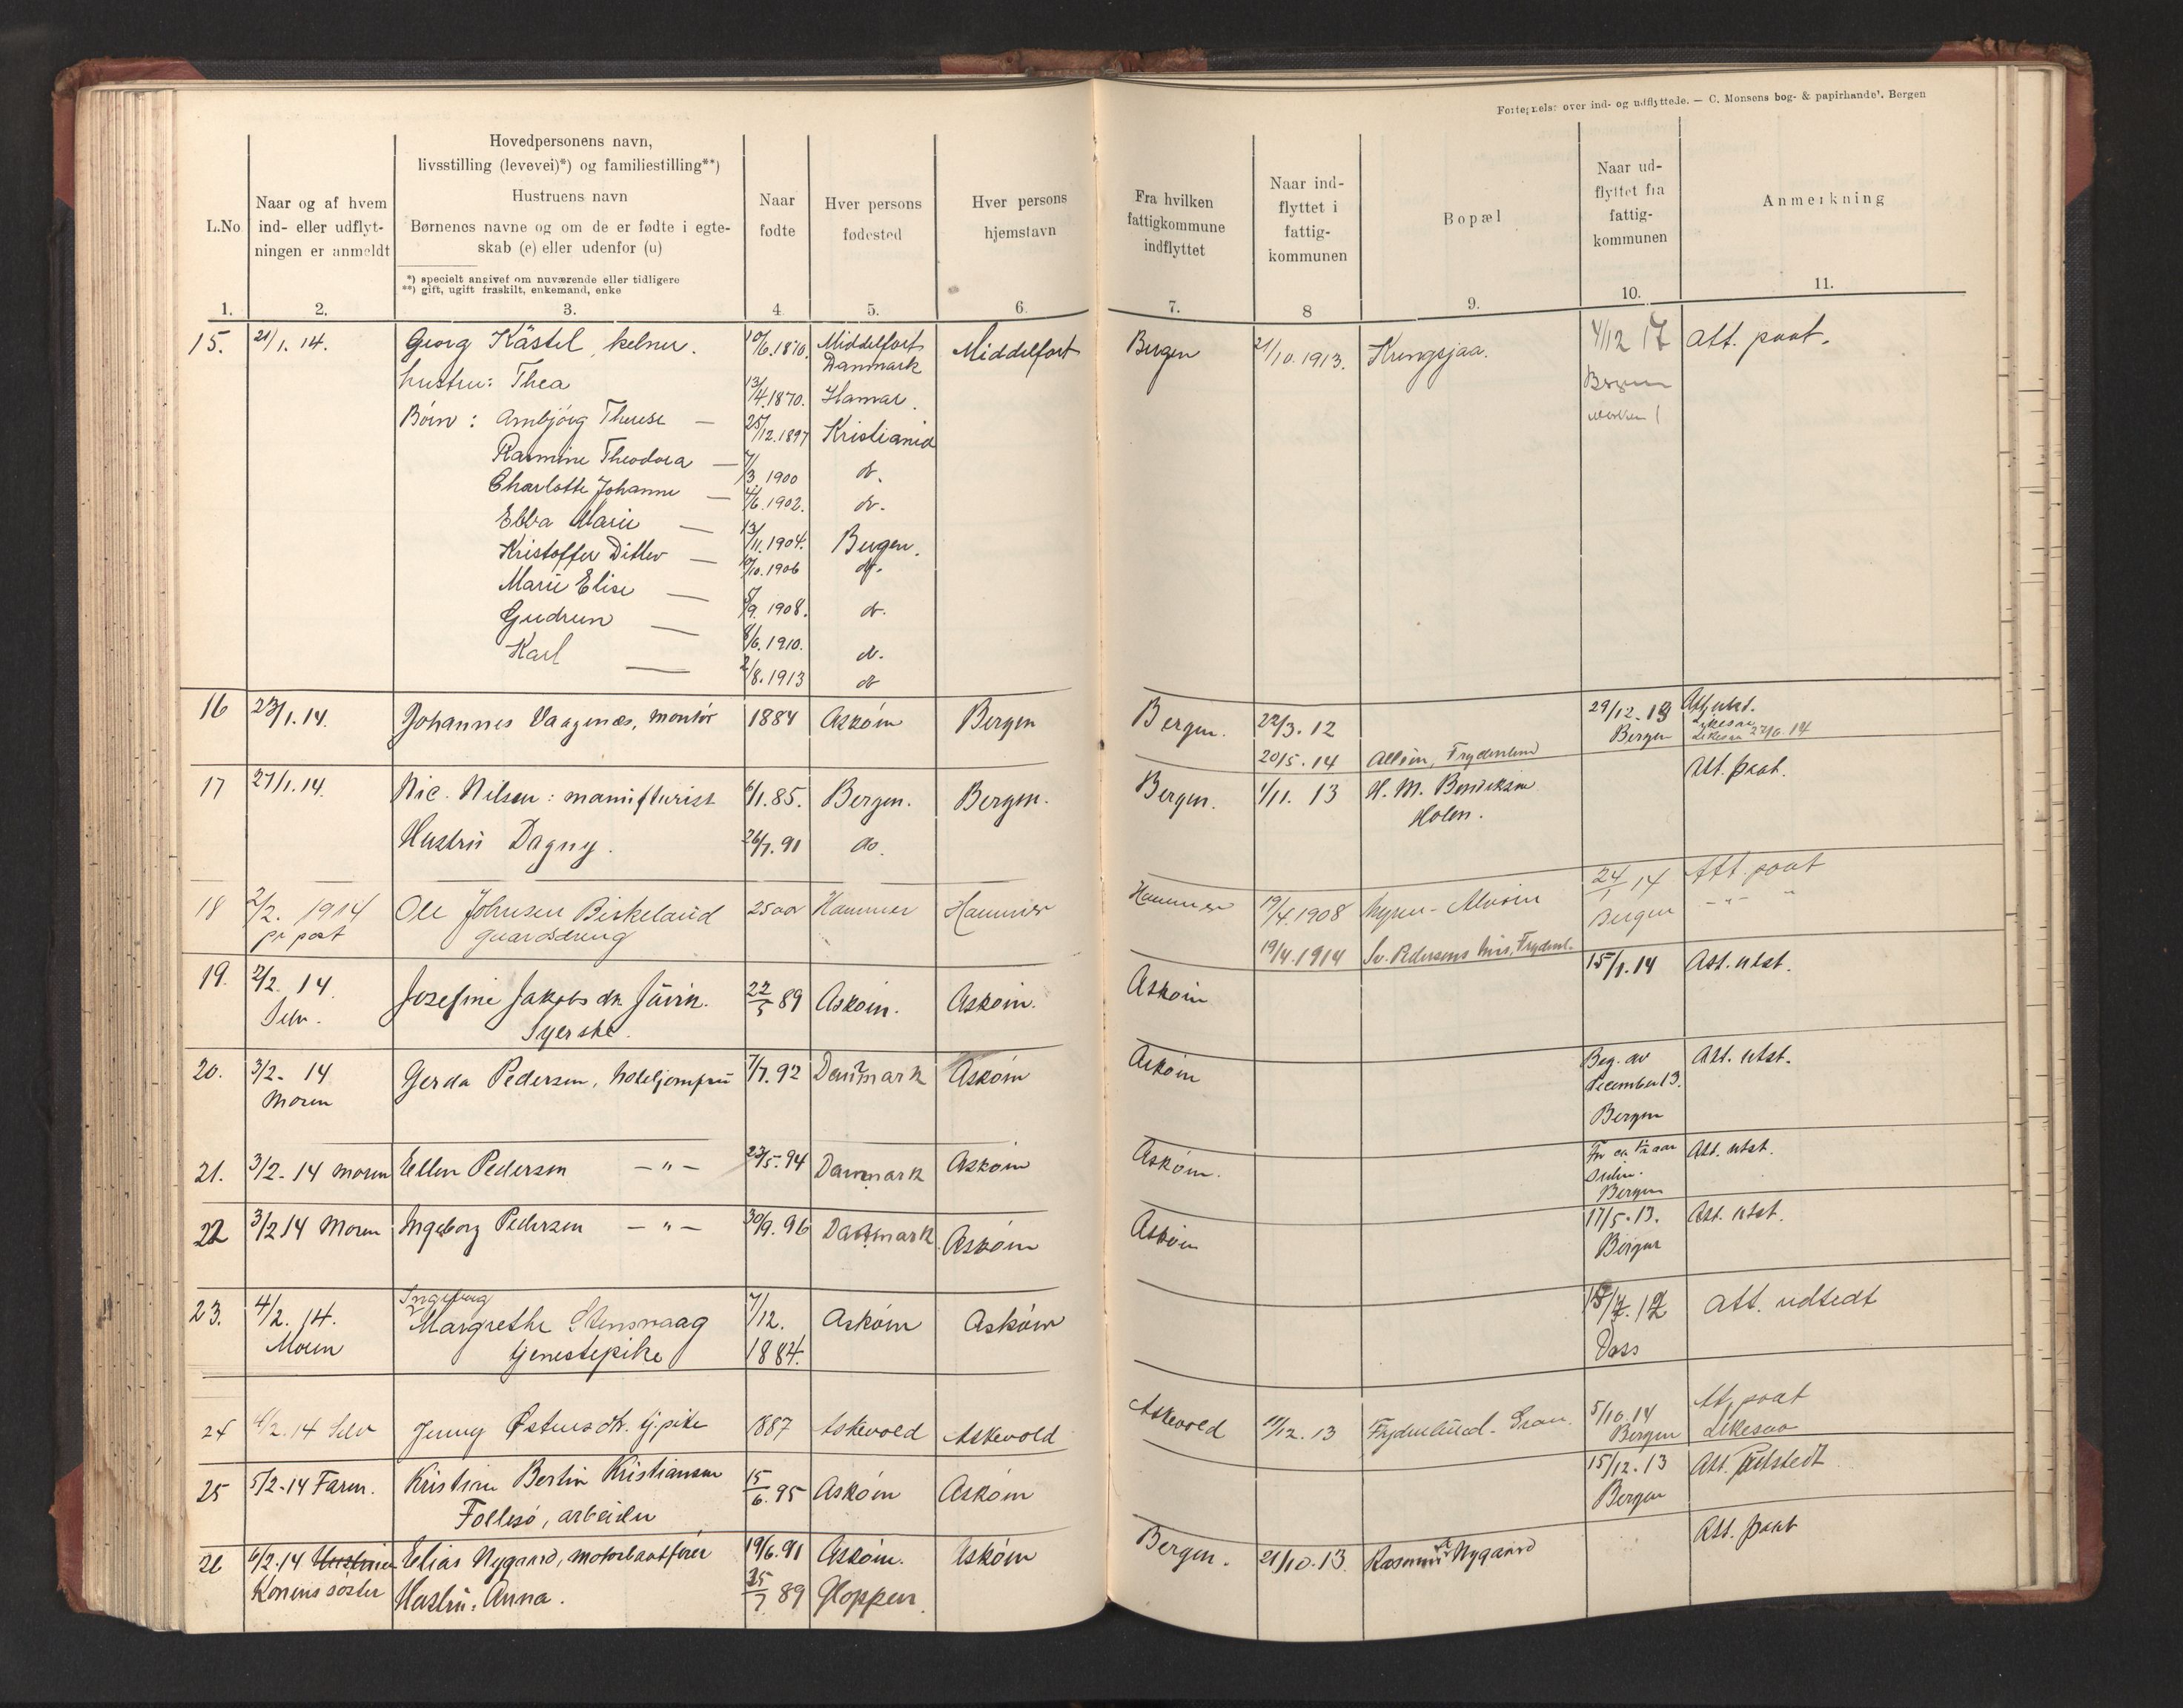 Fortegnelse over ind- og udflyttede. — C. Monsens bog- & papirhandel. Bergen
L.No
1.
Naar og af hvem
ind- eller udflyt-
ningen er anmeldt
2.
Hovedpersonens navn,
livsstilling (levevei)*) og familiestilling**)
Hustruens navn
Børnenes navne og om de er fødte i egte-
skab (e) eller udenfor (u)
*) specielt angivet om nuværende eller tidligere
**) gift, ugift fraskilt, enkemand, enke
3.
Naar
fødte
4
Hver persons
fødested
5.
Hver persons
hjemstavn
6.
Fra hvilken
fattigkommune
indflyttet
7.
Naar ind-
flyttet i
fattig-
kommunen
8
Bopæl
9.
Naar ud-
flyttet fra
fattig-
kommunen
10.
Anmerkning
11.
15. 21/1. 14. Georg Kästel, kelner. 10/6.1870. Middelfart Danmark Middelfart Bergen 21/10.1913. Kringsjaa. 4/12 17 Bergen Att. paat.
hustru: Thea 13/4.1870. Hamar.
Børn: Ambjörg Therese — 25/12.1897 Kristiania
Rasmine Theodora — 7/3.1900 do.
Charlotte Johanne — 4/6.1902. do.
Ebba Marie — 13/11.1904. Bergen.
Kristoffer Ditlev — 10/10.1906 do.
Marie Elise — 8/9 1908. do.
Gudrun — 8/6.1910. do.
Karl — 2/8.1913 do
16 23/1.14. Johannes Vaagenæs, montör 1884 Askøin Bergen Bergen. 22/3. 12 29/12-13 Bergen Att. utst.
Likesaa 27/6.14
20/5. 14 Alvøen, Frydenlund
17 27/1.14. Nic. Nilsen: manufturist 6/1.85. Bergen. Bergen. Bergen. 1/11. 13 H. M. Bendiksen Holen. Att. paat.
Hustru Dagny. 26/7.91 do.
18 2/2. 1914 pr post Ole Johnsen Birkeland 25 aar Hammer Hammer Hammer 19/4.1908 Myren - Alvøen 24/1 14 Bergen Att. paat
gaardsdreng 19/4.1914 Sv. Pedersens hus, Frydenl. — " — "
19. 2/2. 14 Selv. Josefine Jakobsdtr. Juvik. Syerske. 22/5 89 Askøin. Askøin. Askøin 15/1.14 Att. utst.
20. 3/2- 14 Moren Gerda Pedersen, hoteljomfru 7/7.92 Danmark Askøin Askøin Beg. av december 13. Bergen Att. utst.
21. 3/2-14 moren Ellen Pedersen — " — 23/5.94 Danmark Askøin Askøin. For ca ½ aar siden. Bergen Att. utst.
22 3/2 14 Moren Ingeborg Pedersen — " — 30/9.96 Danmark Askøin Askøin 17/5-13. Bergen Att. utst.
23. 4/2. 14. Moren Ingeborg Margrethe Stensvaag tjenestepike 7/12. 1884. Askøin Askøin Voss Att. udstedt
24 4/2.14 Selv Jenny Østensdtr. tj.pike 1887 Askevold Askevold Askevold 11/12. 13 Frydenlund - Gran. 5/10.14 Bergen Att. paat Likesaa
25 5/2-14 Faren. Kristian Bertin Kristiansen Follesø, arbeider 15/6.95 Askøin Askøin 15/12-13 Bergen Att. udstedt
26 6/2.14 Hustruen Konens søster Elias Nygaard, motorbaatfører 19/6.91 Askøin. Askøin Bergen. 21/10.13. Rasmus Nygaard Att. paat
Hustru: Anna. 25/7 89 Gloppen.